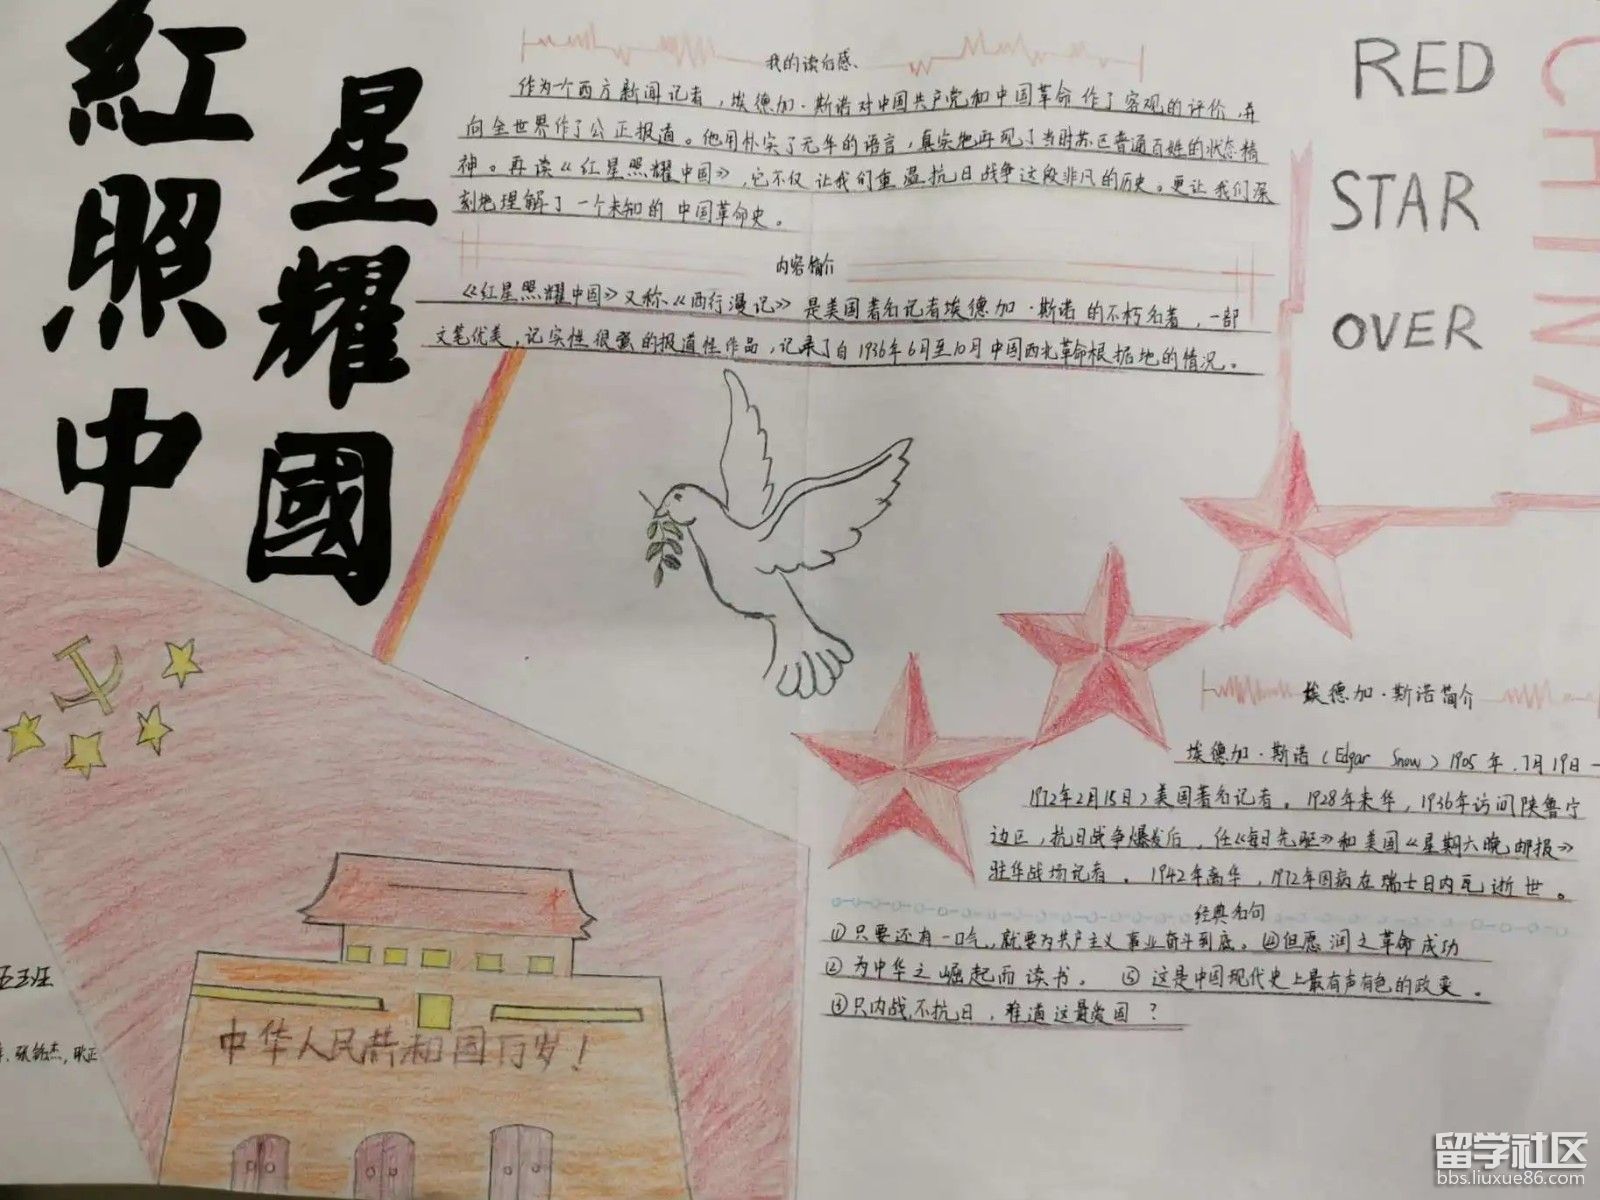 紅星照耀中國
我的读后感
作为一个西方新闻记者，埃德加·斯诺对中国共产党和中国革命作了客观的评价，并
向全世界作了公正报道。他用朴实了无华的语言，真实地再现了当时苏区普通百姓的状态精
神。再读《红星照耀中国》，它不仅让我们重温抗日战争这段非凡的历史。更让我们深
刻地理解了一个未知的中国革命史。
内容简介
《红星照耀中国》又称《西行漫记》是美国著名记者埃德加·斯诺的不朽名著，一部
文笔优美，记实性很强的报道性作品，记录了自1936年6月至10月中国西北革命根据地的情况。
RED
STAR
OVER
CHINA
埃德加·斯诺简介
埃德加·斯诺（Edgar Snow）1905年.7月19日—
1972年2月15日）美国著名记者。1928年来华，1936年访问陕鲁宁
边区，抗日战争爆发后，任《每日先驱》和美国《星期六晚邮报》
驻华战场记者。1942年离华，1972年因病在瑞士日内瓦逝世。
经典名句
①只要还有一口气，就要为共产主义事业奋斗到底。④但愿润之革命成功
②为中华之崛起而读书。 ⑤这是中国现代史上最有声有色的政变。
③只内战，不抗日，难道这最爱国？
五班
张铭杰，耿正
中华人民共和国万岁！
留学社区
bbs.liuxue86.com